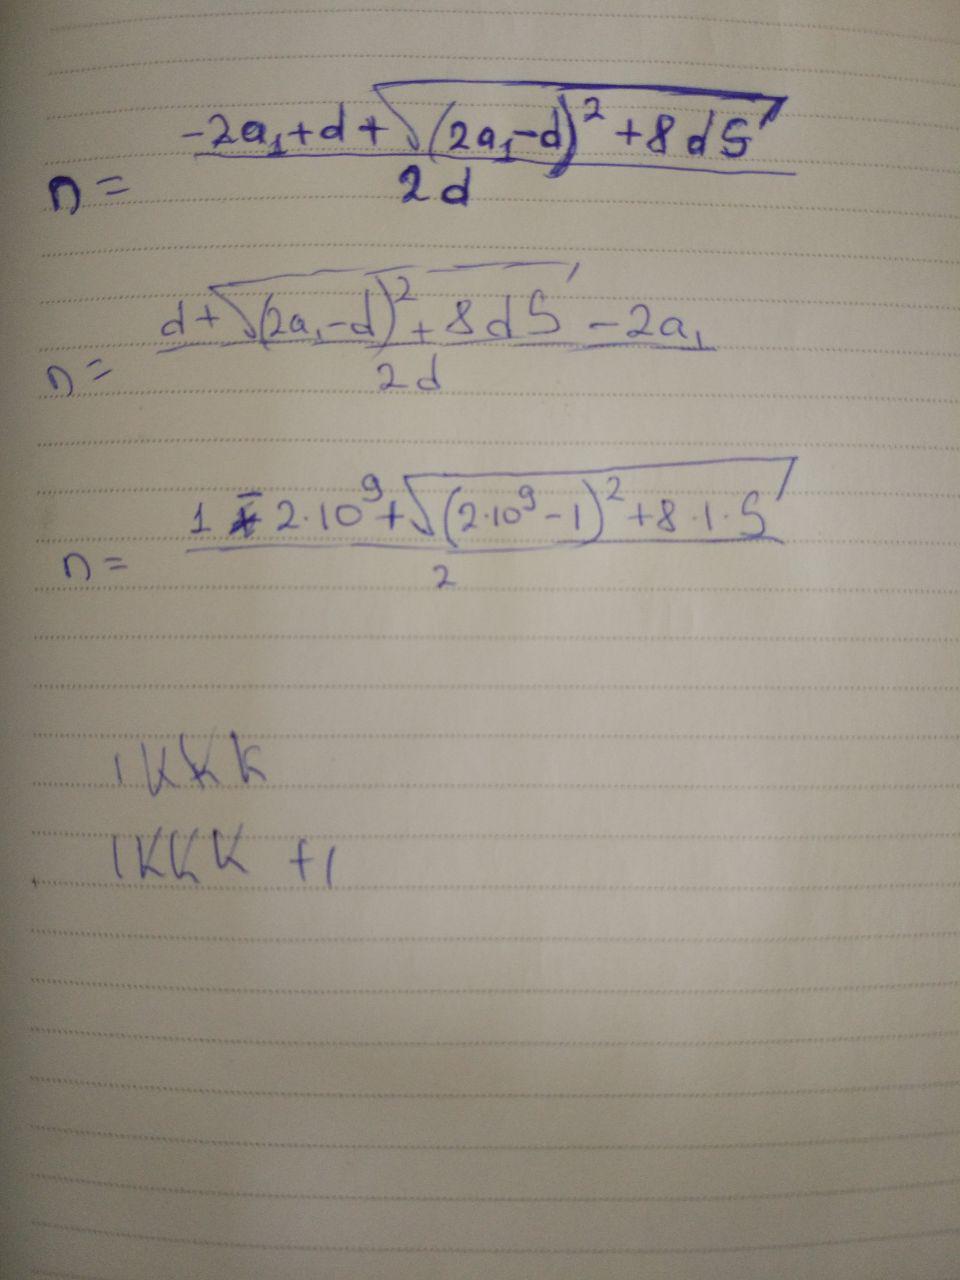 n = (-2a₁+d+√((2a₁-d)²+8dS))/(2d)
n = (d+√((2a₁-d)²+8dS)-2a₁)/(2d)
n = (1-2·10⁹+√((2·10⁹-1)²+8·1·S))/2
1KKK
1KKK +1